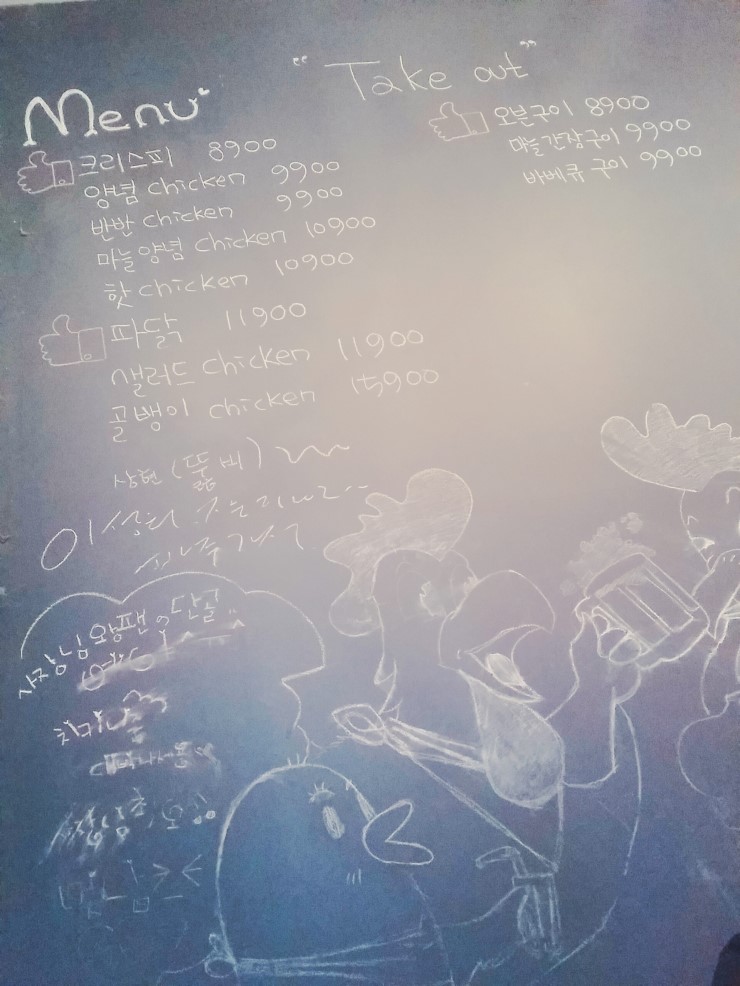 Menu
"Take out"
크리스피 8900
양념 chicken 9900
반반 chicken 9900
마늘양념 chicken 10900
핫 chicken 10900
파닭 11900
샐러드 chicken 11900
골뱅이 chicken 15900
오븐구이 8900
마늘간장구이 9900
바베큐 구이 9900
사장님 왕팬
단골